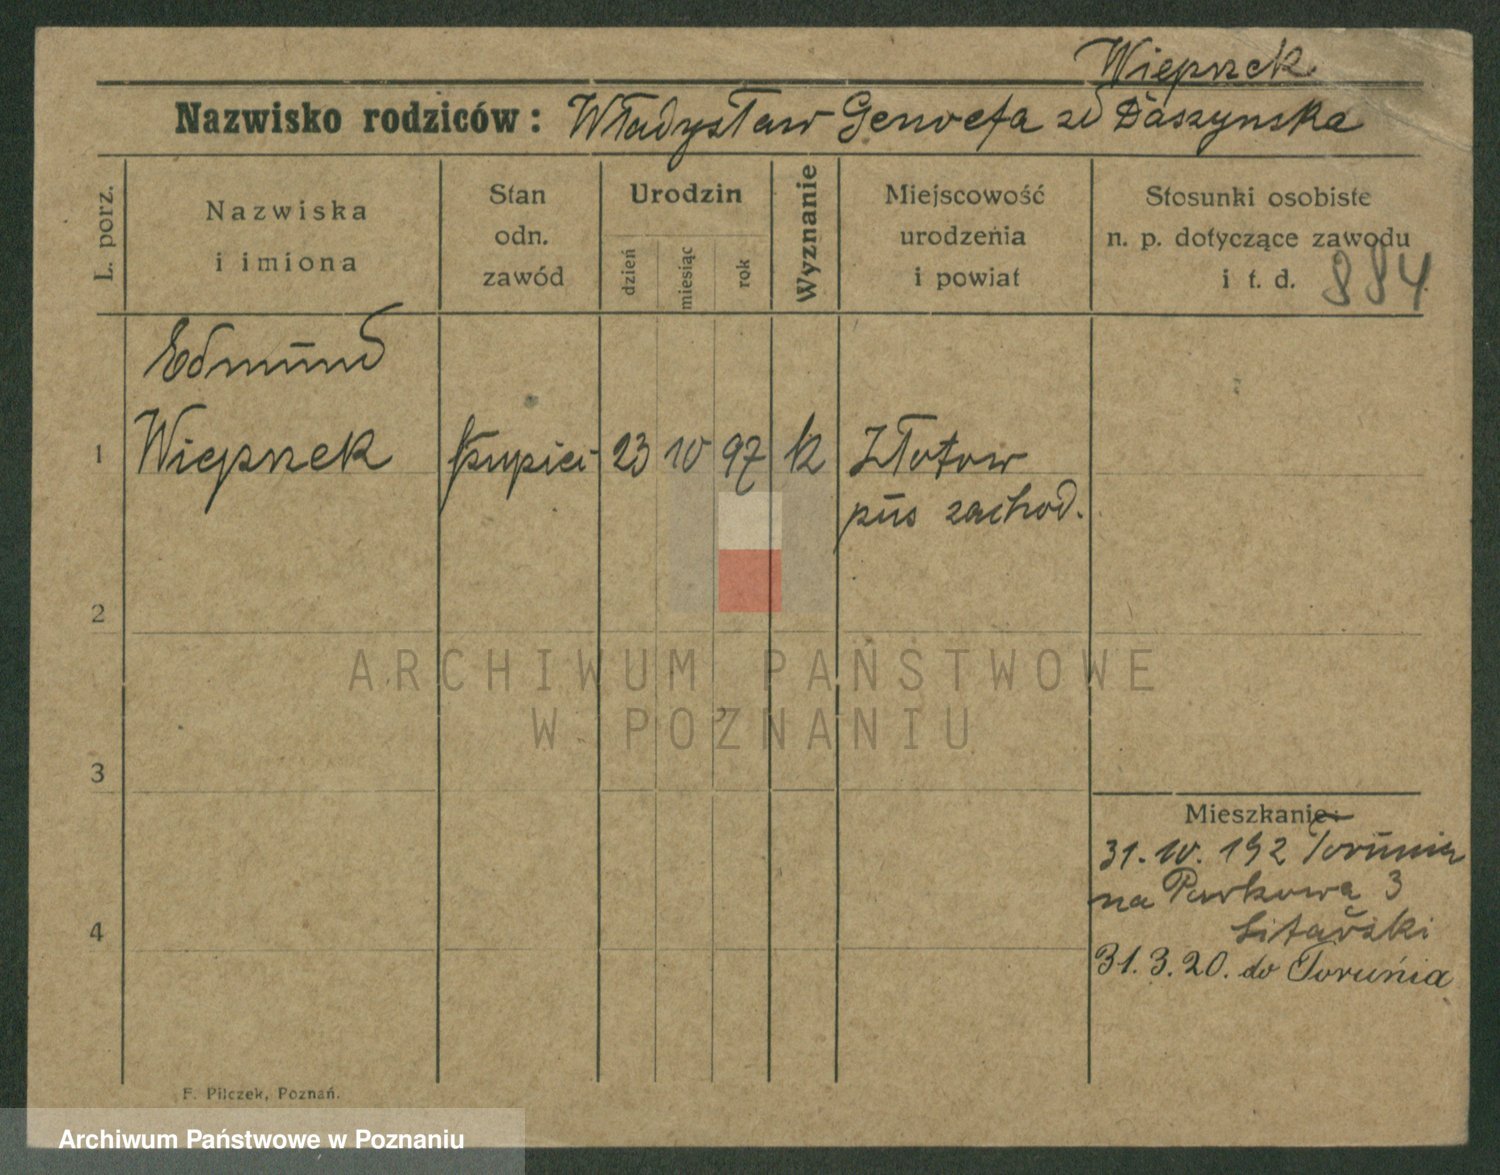 Wieprzek
Nazwisko rodziców: Władysław Genowefa zd Daszynska
L. porz.
Nazwiska
i imiona
Stan
odn.
zawód
Urodzin
dzień
miesiąc
rok
Wyznanie
Miejscowość
urodzenia
i powiat
Stosunki osobiste
n. p. dotyczące zawodu
i t. d. 884
Edmund
1 Wieprzek kupiec 23 10 97 k Złotow
prus zachod.
2
3
4
Mieszkanie:
31. 10. 192 Torunia
na Parkowa 3
31. 3. 20. do Torunia
F. Pilczek, Poznań.
ARCHIWUM PAŃSTWOWE
W POZNANIU
Archiwum Państwowe w Poznaniu